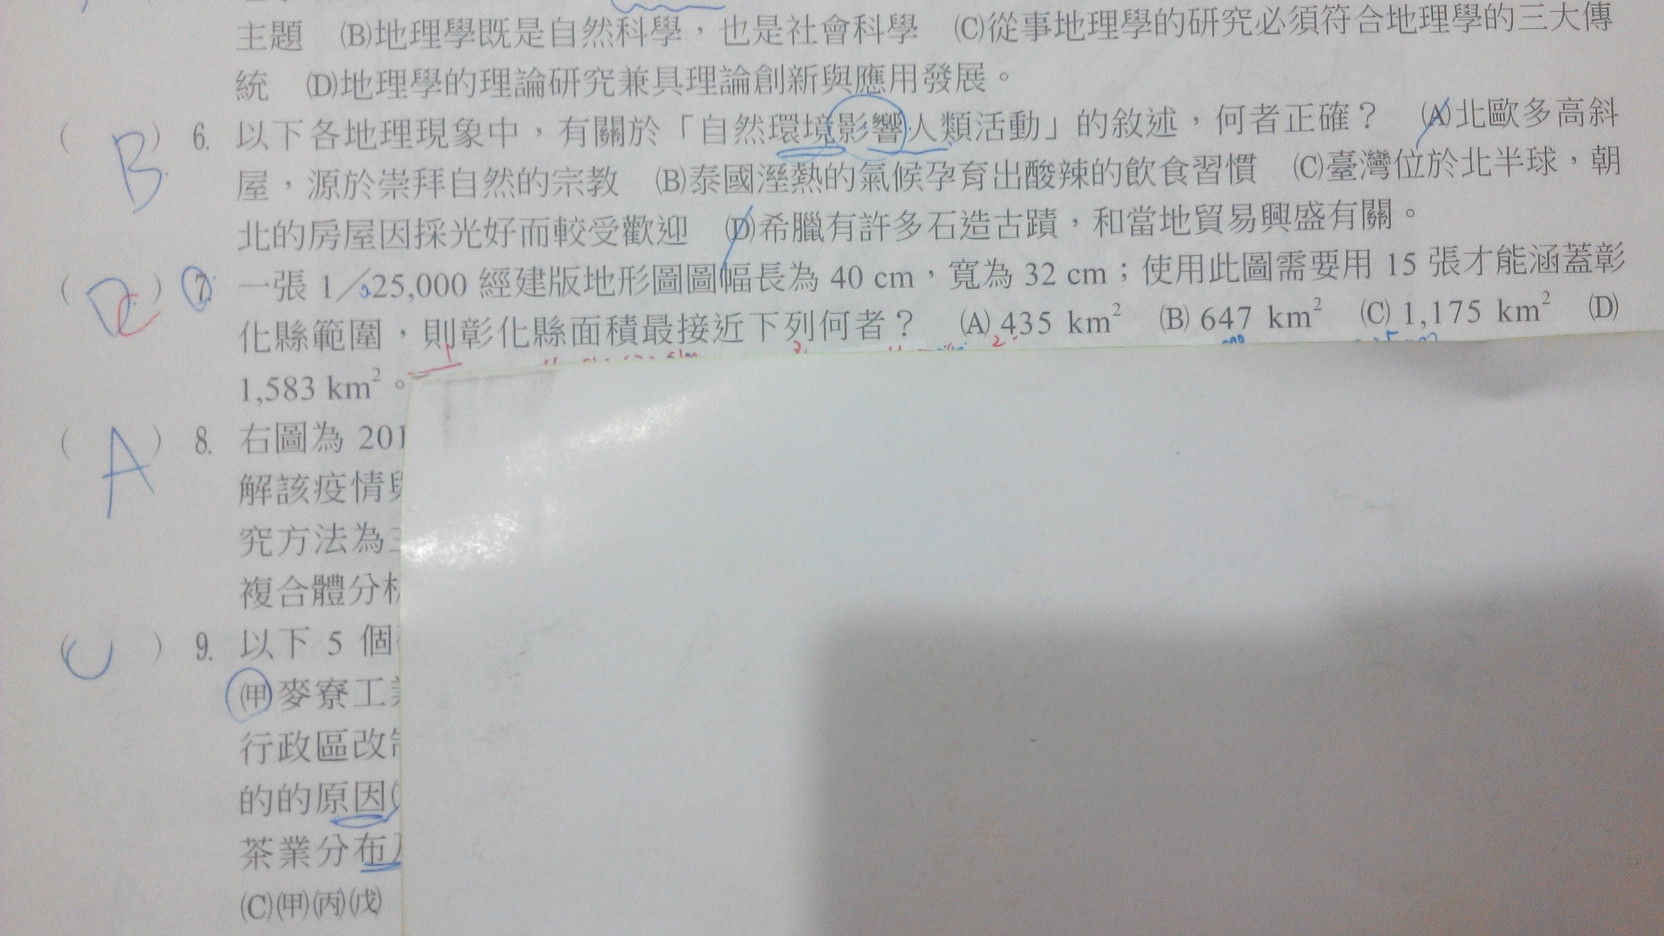 主題 (B)地理學既是自然科學，也是社會科學 (C)從事地理學的研究必須符合地理學的三大傳
統 (D)地理學的理論研究兼具理論創新與應用發展。
( B ) 6. 以下各地理現象中，有關於「自然環境影響人類活動」的敘述，何者正確？ (A)北歐多高斜
屋，源於崇拜自然的宗教 (B)泰國溼熱的氣候孕育出酸辣的飲食習慣 (C)臺灣位於北半球，朝
北的房屋因採光好而較受歡迎 (D)希臘有許多石造古蹟，和當地貿易興盛有關。
( D C ) 7. 一張 1／25,000 經建版地形圖圖幅長為 40 cm，寬為 32 cm；使用此圖需要用 15 張才能涵蓋彰
化縣範圍，則彰化縣面積最接近下列何者？ (A) 435 km² (B) 647 km² (C) 1,175 km² (D)
1,583 km²。
( A ) 8. 右圖為 201
解該疫情
究方法為
複合體分
( C ) 9. 以下 5 個
(甲)麥寮工
行政區改
的的原因
茶業分布
(C)(甲)(丙)(戊)